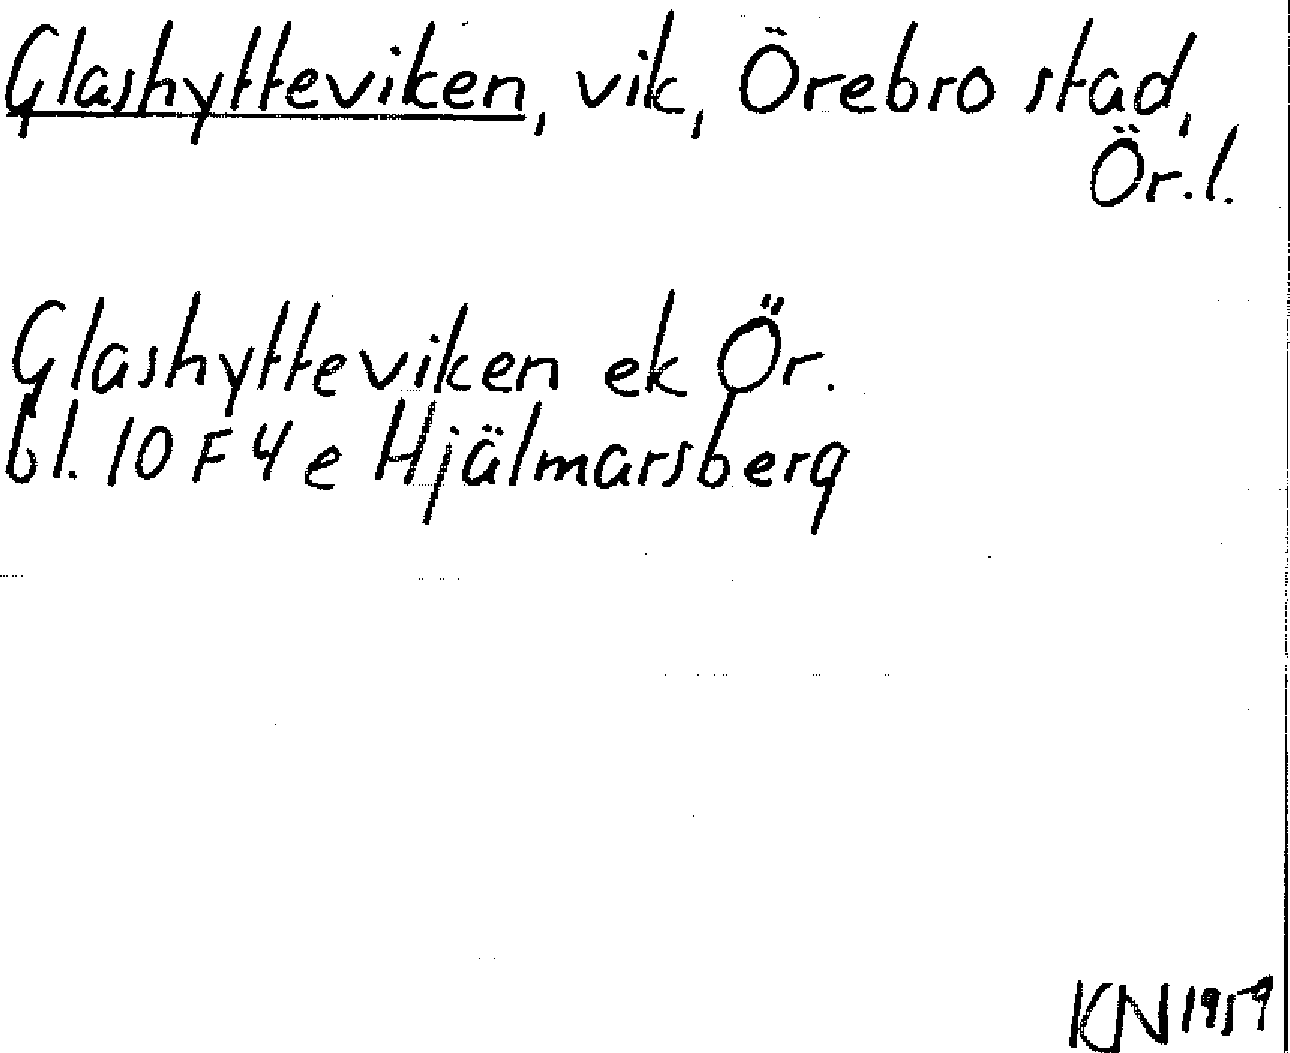 Glashytteviken, vik, Örebro stad,
Ör.l.
Glashytteviken ek Ör.
bl. 10 F 4 e Hjälmarsberg
KN 1959